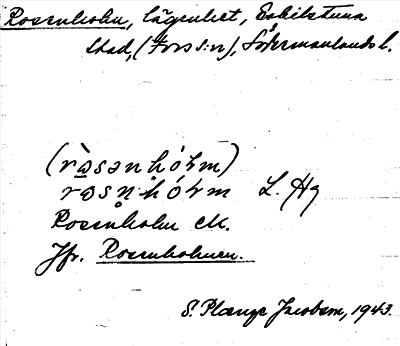 Rosenholm, lägenhet, Eskilstuna
stad, (Fors s:n), Södermanlands l.
(ròsənhólm)
rosn̥hólm L. Hg
Rosenholm EK.
Jfr. Rosenholmen.
S. Plænge Jacobson, 1943.